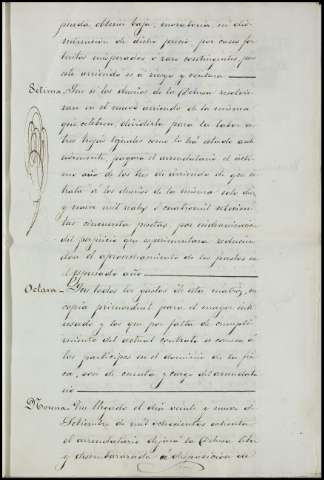 pueda obtener baja, moratoria ni dis-
minucion de dicho precio por casos for-
tuitos inesperados o raros contingentes, pues
este arriendo es a riesgo y ventura
Setima. Que si los dueños de la Dehesa resolvie-
ran en el nuevo arriendo de la misma
que celebren, dividirla para la labor a
tres hojas tajenales como lo há estado anti-
guamente, pagará el arrendatario el últi-
mo año de los tres de arriendo de que se
trata á los dueños de la misma solo diez
y nueve mil reales o cuatro mil setecien-
tas cincuenta pesetas, por indemnizacion
del perjuicio que esperimentara reducien-
dose el aprovechamiento de los pastos en
el espresado año.
Octava. Que todos los gastos de esta matriz, su
copia primordial para el mayor inte-
resado y los que por falta de cumpli-
miento del actual contrato se causen á
los participes en el dominio de la fin-
ca, son de cuenta y cargo del arrendata-
rio
Novena. Que llegado el dia veinte y nueve de
Setiembre de mil ochocientos ochenta
el arrendatario dejará la Dehesa libre
y desembarazada a disposicion de